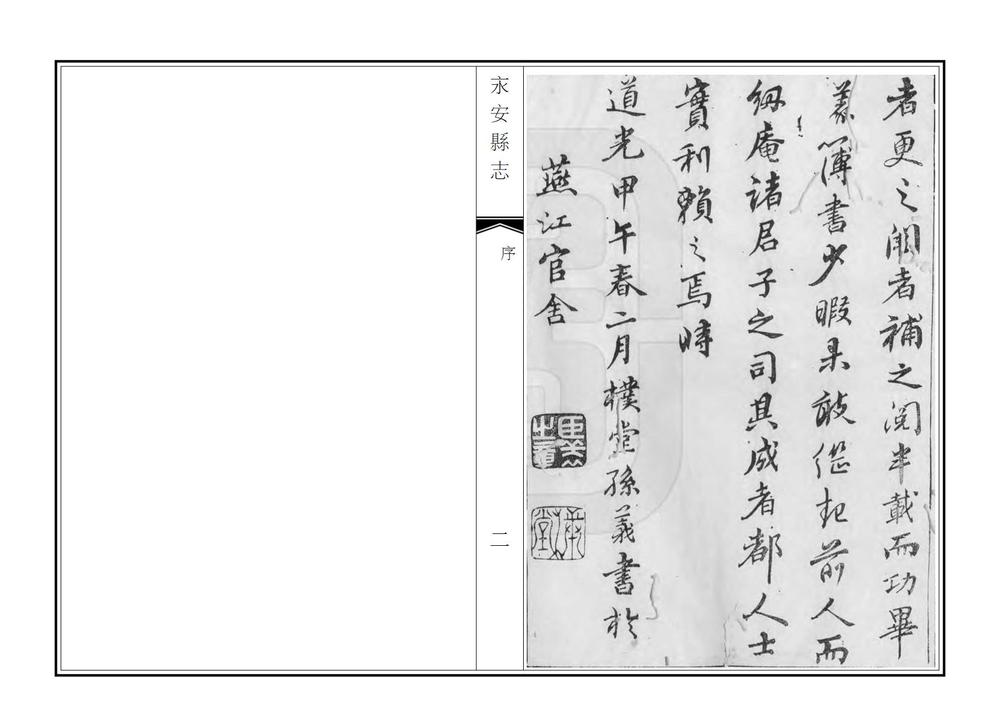 者更之闕者補之閱半載而功畢
義簿書少暇果敢繼軌前人而
紉庵諸君子之司其成者都人士
實利賴之焉時
道光甲午春二月樸堂孫義書於
燕江官舍
永安縣志
序
二